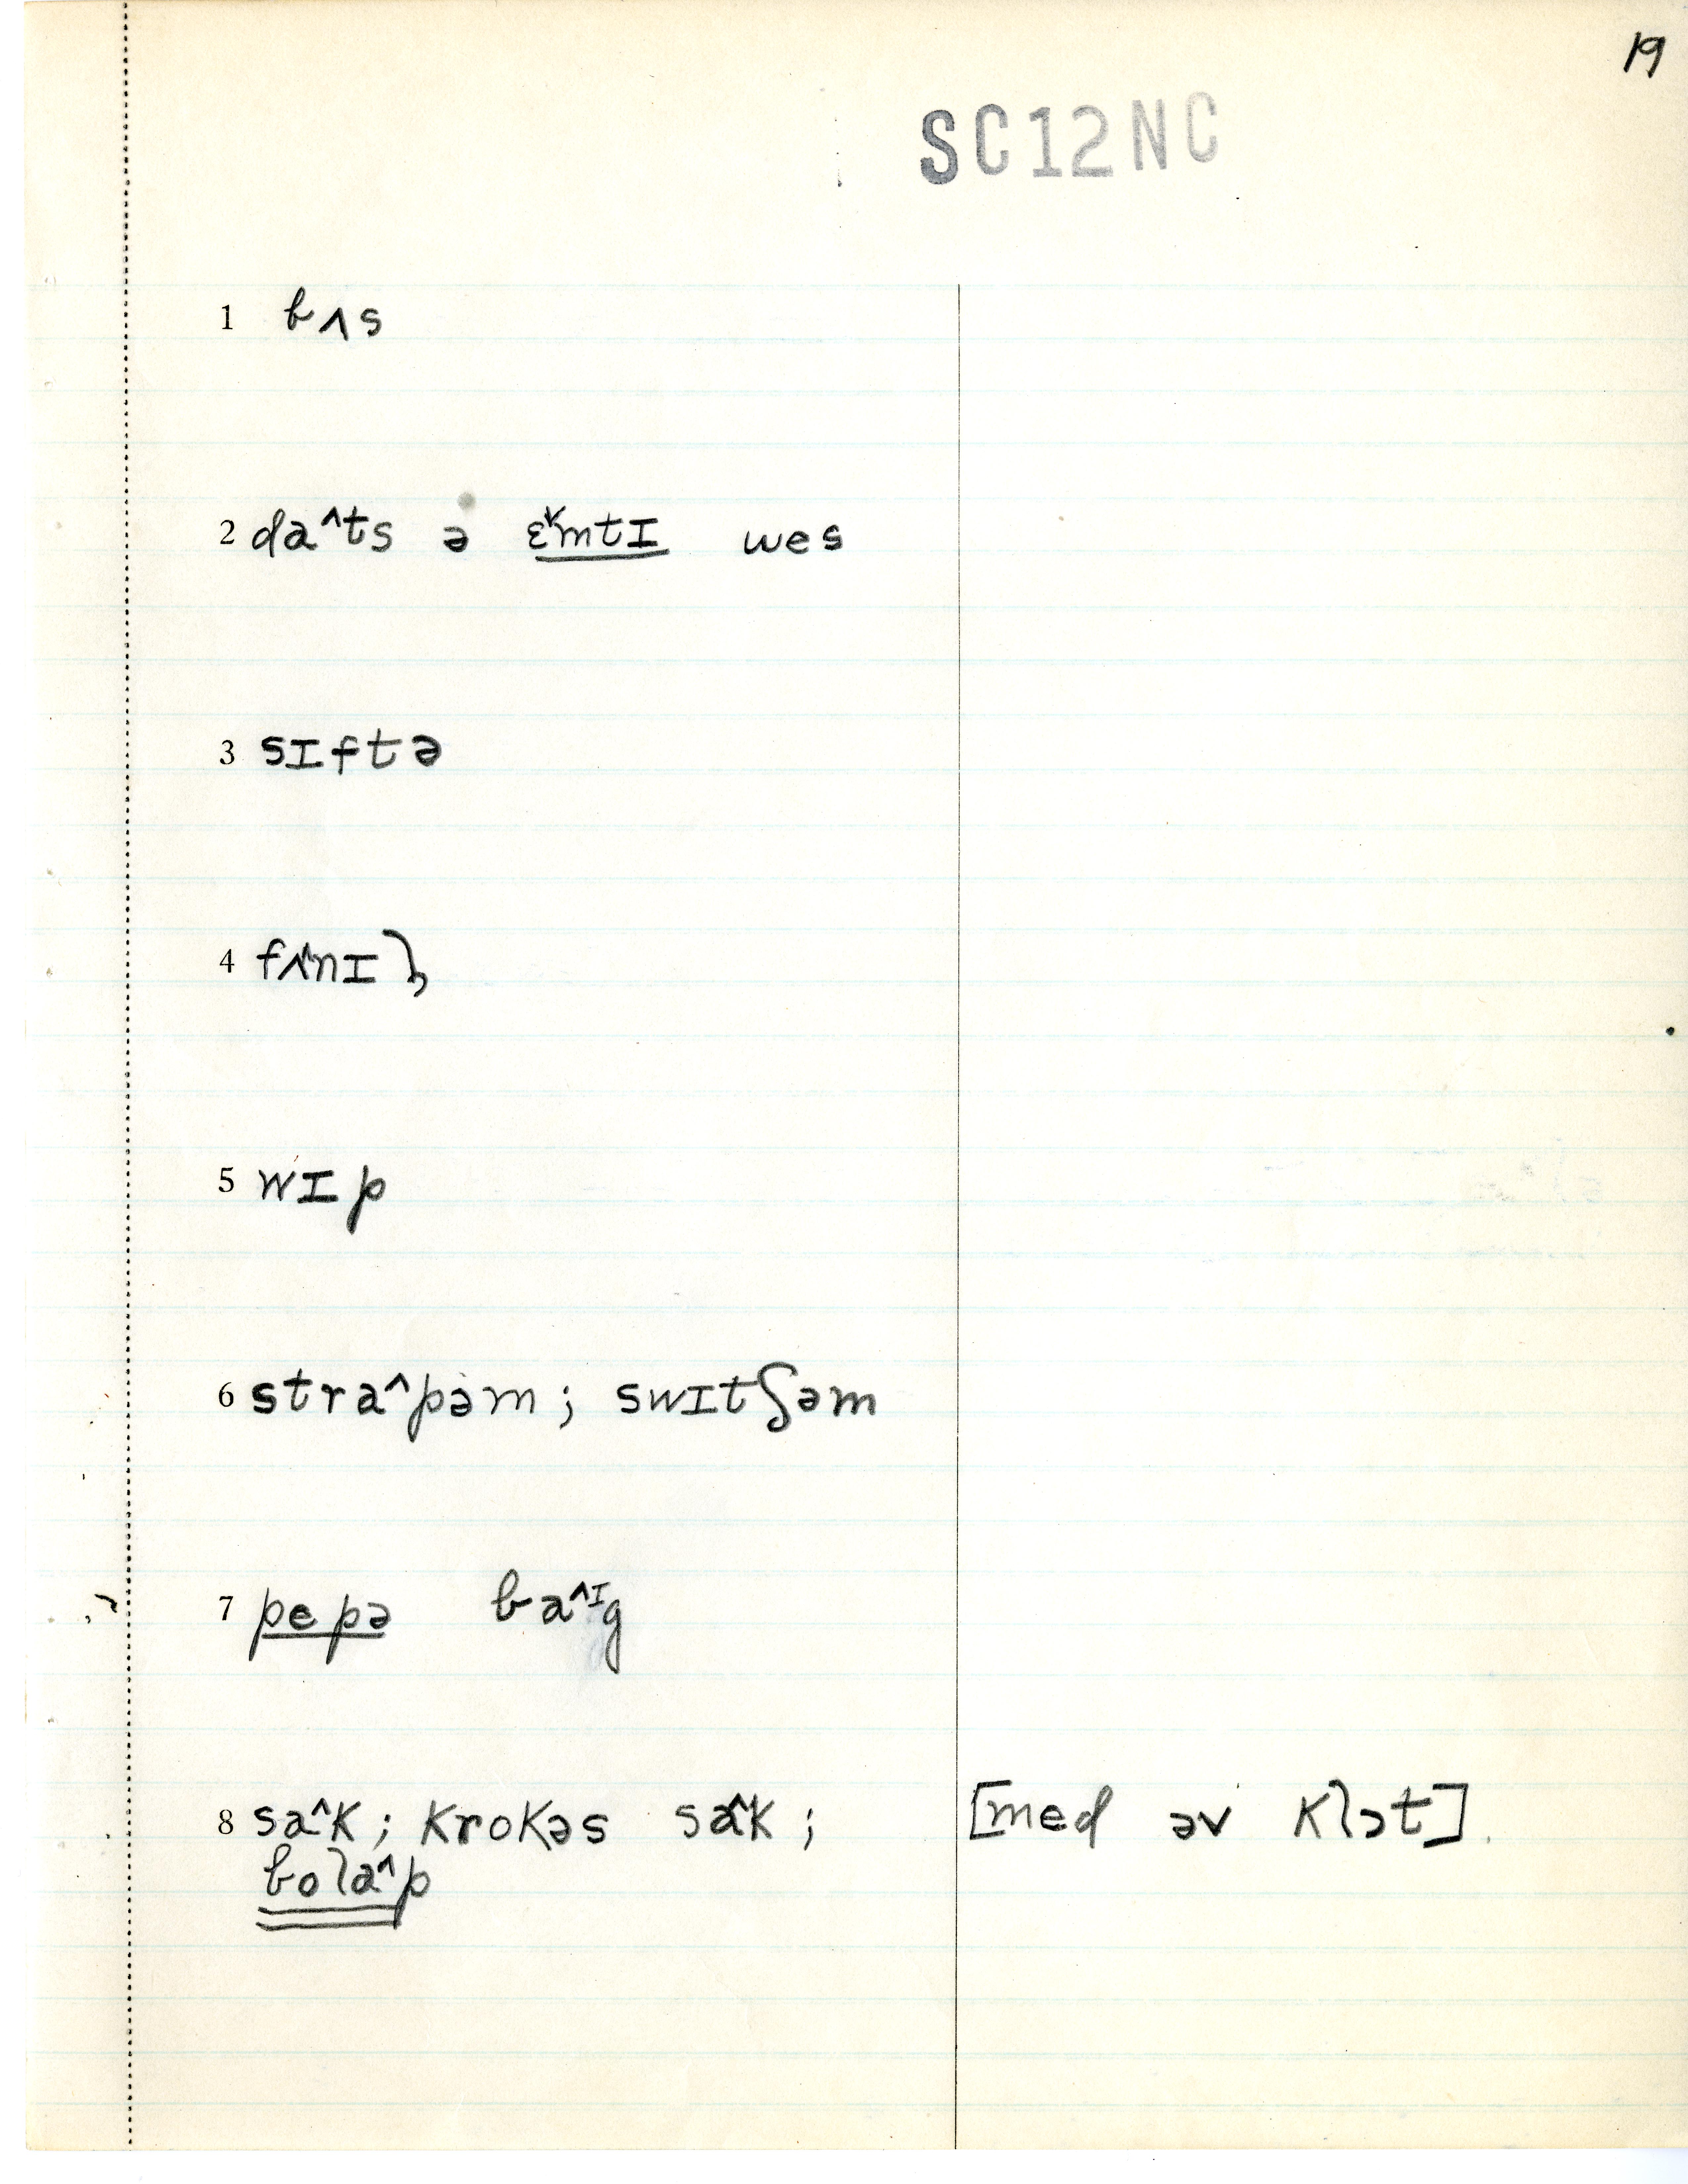 19
SC12NC
1 bʌs
2 da^ts ə ɛ˅mtɪ wes
3 sɪftə
4 fʌ^nɪɫ
5 wɪp
6 stra^pəm; swɪtʃəm
7 pepə ba^ɪg
8 sa^k; krokəs sa^k; [med əv klɔt].
bola^p